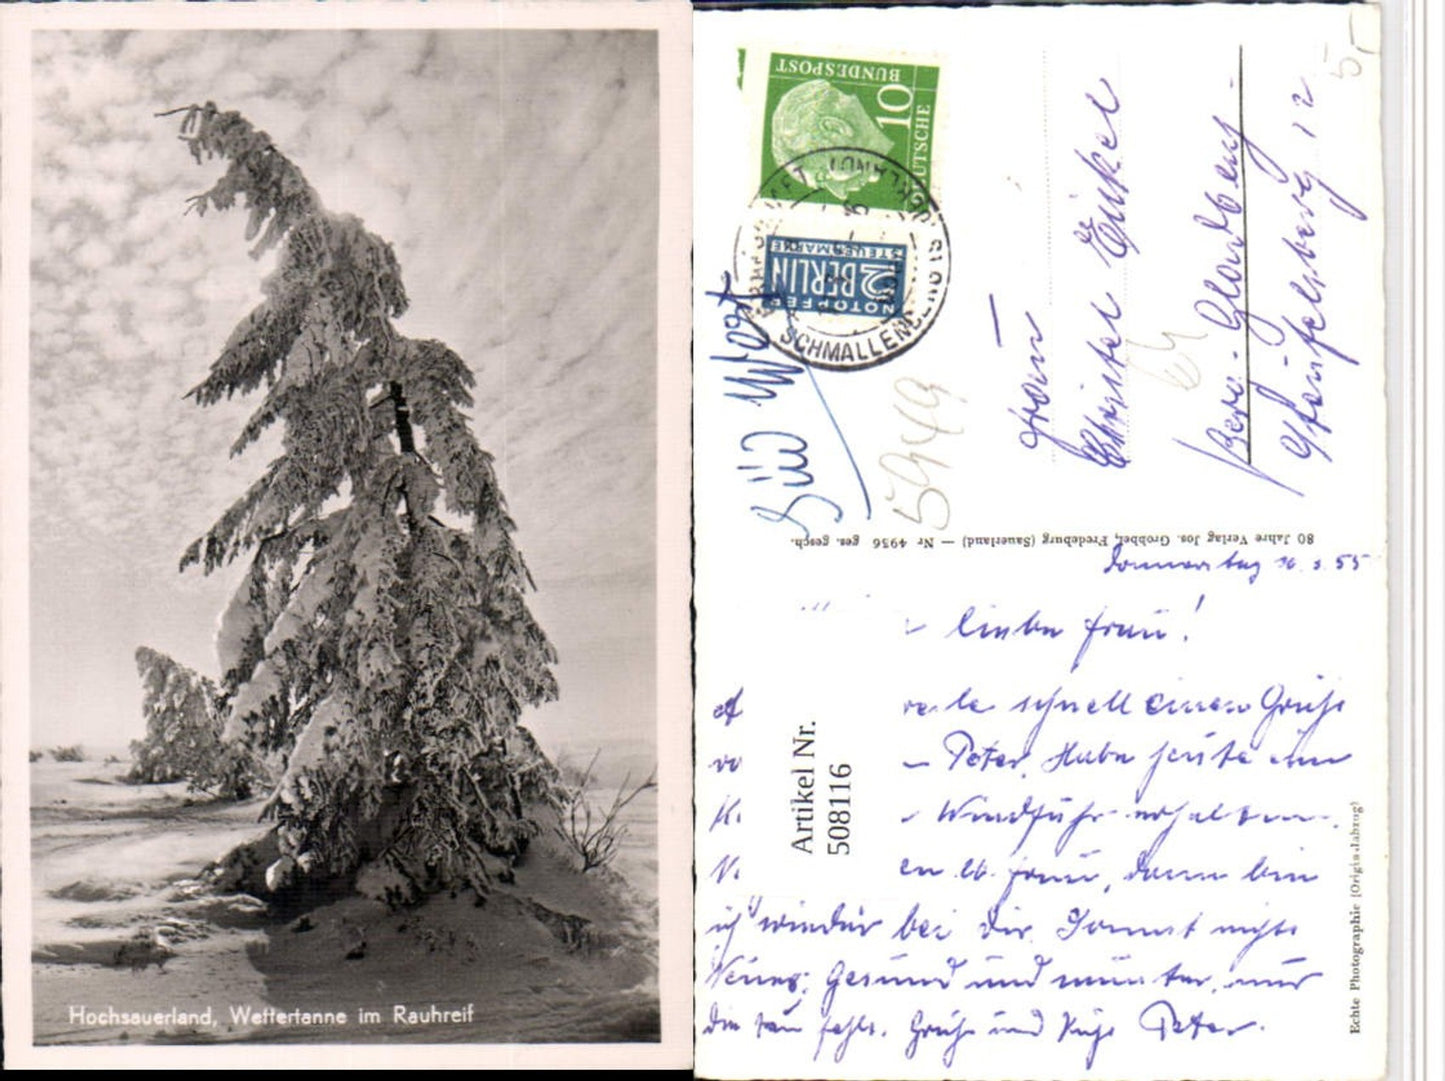 Hochsauerland, Wettertanne im Rauhreif
DEUTSCHE
BUNDESPOST
10
NOTOPFER
2 BERLIN
STEUERMARKE
SCHMALLENBERG
Süd West
59449
5,-
Frau
Christel
Berg. Gladbach
12
80 Jahre Verlag Jos. Grobbel, Fredeburg (Sauerland) — Nr 4956 ges. gesch.
Donnerstag 55
liebe Frau!
schnell einen Gruß
Peter. Habe heute
Windjuhr erhalten.
en lb. Frau, dann bin
ich wieder bei Dir. Sonst nichts
Neues; Gesund und munter, nur
die fehlt. Grüße und Kuß Peter.
Artikel Nr.
508116
Echte Photographie (Originalabzug)